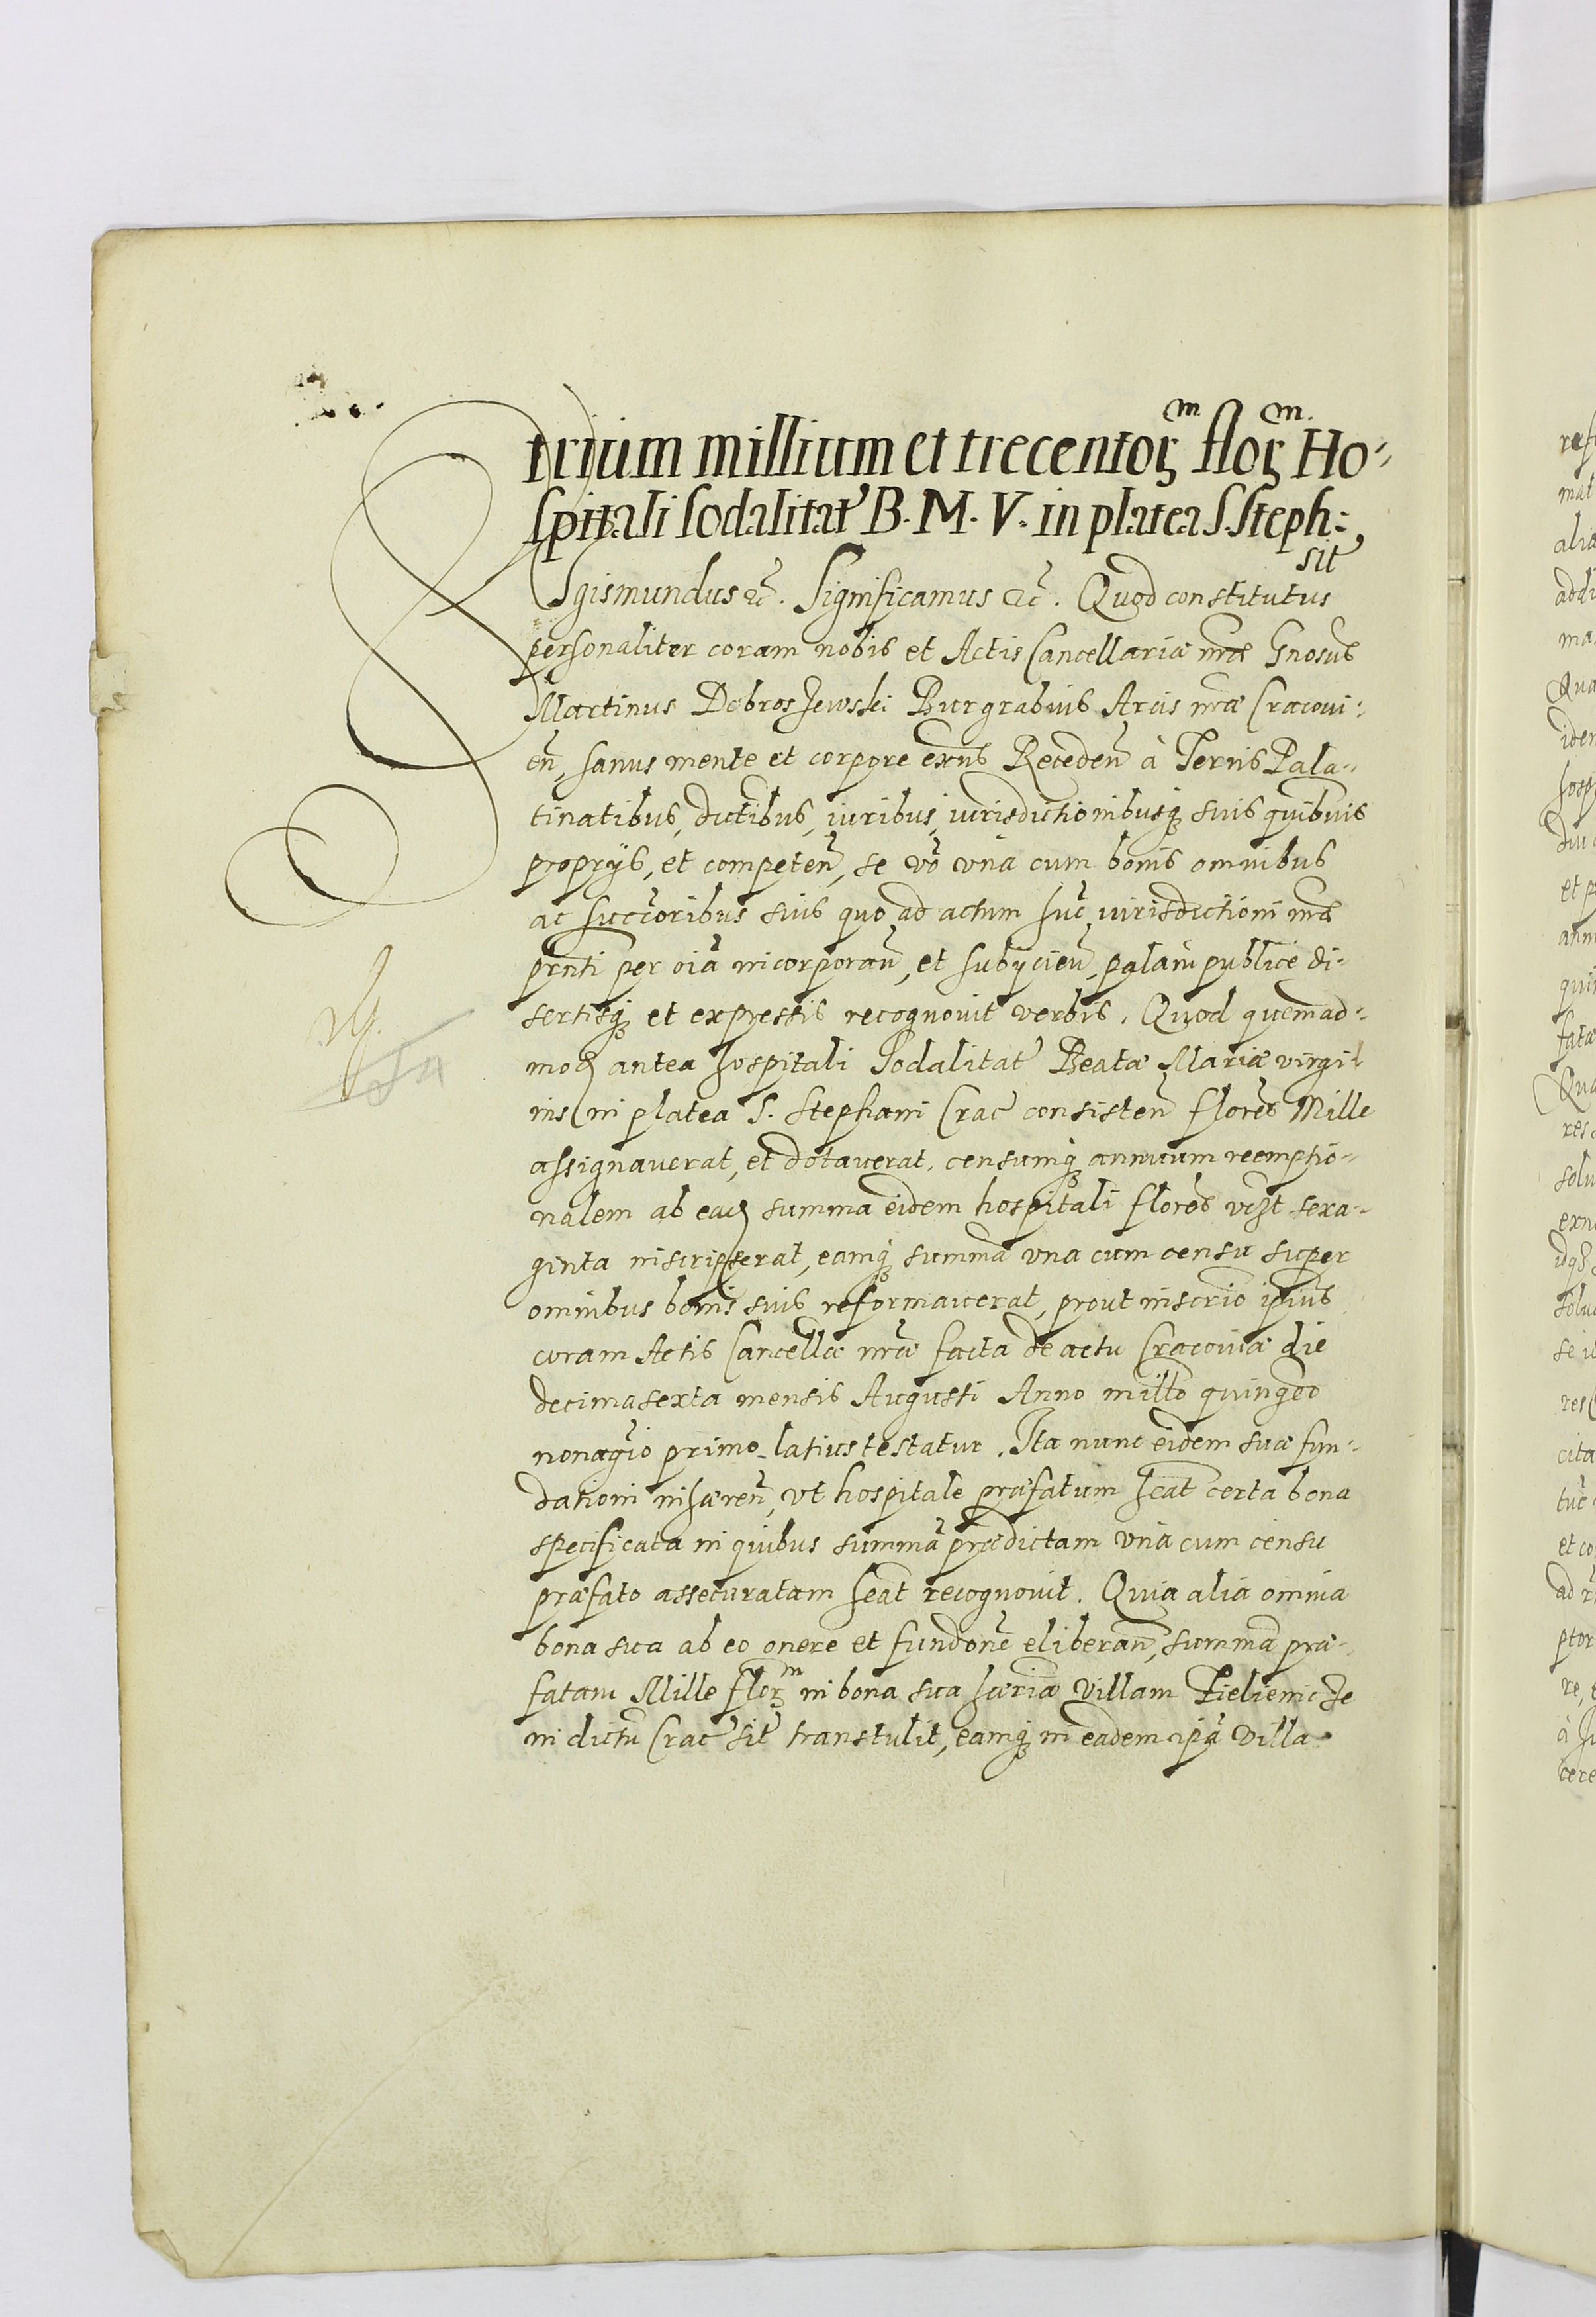 trium millium et trecentorm florm. Ho-
spitali Sodalitat B. M. V. in platea S. Steph:
sit
Sgismundus etc. Significamus etc. Quod constitutus
personaliter coram nobis et Actis Cancellariæ nrae Gnosus
Martinus Dobroszewski Burgrabius Arcis nræ Cracoui:
en, sanus mente et corpore exns Receden à Terris Pala-
tinatibus, dictibus, iuribus, iurisdictionibusq suis quibuis
proprijs, et competen, se vo vná cum bonis omnibus
ac succoribus suis quo ad actum huc iurisdictioni nrae
prnti per oia incorporan, et subijcien, palam publice di-
sertisq et expressis recognouit verbis. Quod quemad-
mod antea hospitali Sodalitat Beatæ Mariæ virgi-
nis in platea S. Stephani Crac consisten flores Mille
assignauerat, et dotauerat, censumq annuum reemptio-
nalem ab ead summa eidem hospitali flores vgt sexa-
ginta inscripserat, eamq summa vna cum censu super
omnibus bonis suis reformauerat, prout inscrio ipius
coram Actis Cancellæ nræ facta de actu Cracouiæ die
decimasexta mensis Augusti Anno millo quingeo
nonagio primo latius testatur. Ita nunc eidem suæ fun-
dationi inhæren, vt hospitale præfatum heat certa bona
specificata in quibus summa prædictam vná cum censu
præfato assecuratam heat recognouit. Quia alia omnia
bona sua ab eo onere et fundone eliberan, summa præ-
fatam Mille florm in bona sua hæria Villam Zielienicze
in dictu Crac sit transtulit, eamq in eadem ipa villa